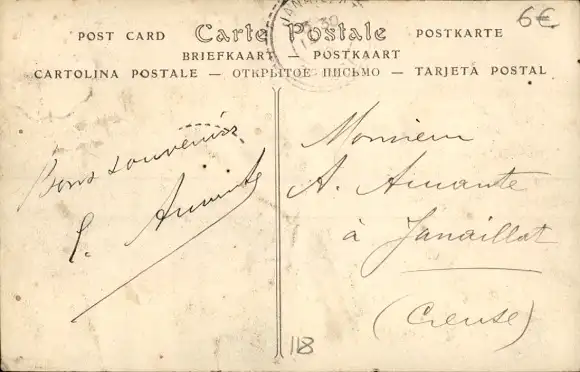 6€
POST CARD Carte Postale POSTKARTE
BRIEFKAART — POSTKAART
CARTOLINA POSTALE — ОТКРЫТОЕ ПИСЬМО — TARJETA POSTAL
Bons souvenirs
Monsieur
A. Amante
à Janaillat
(Creuse)
118